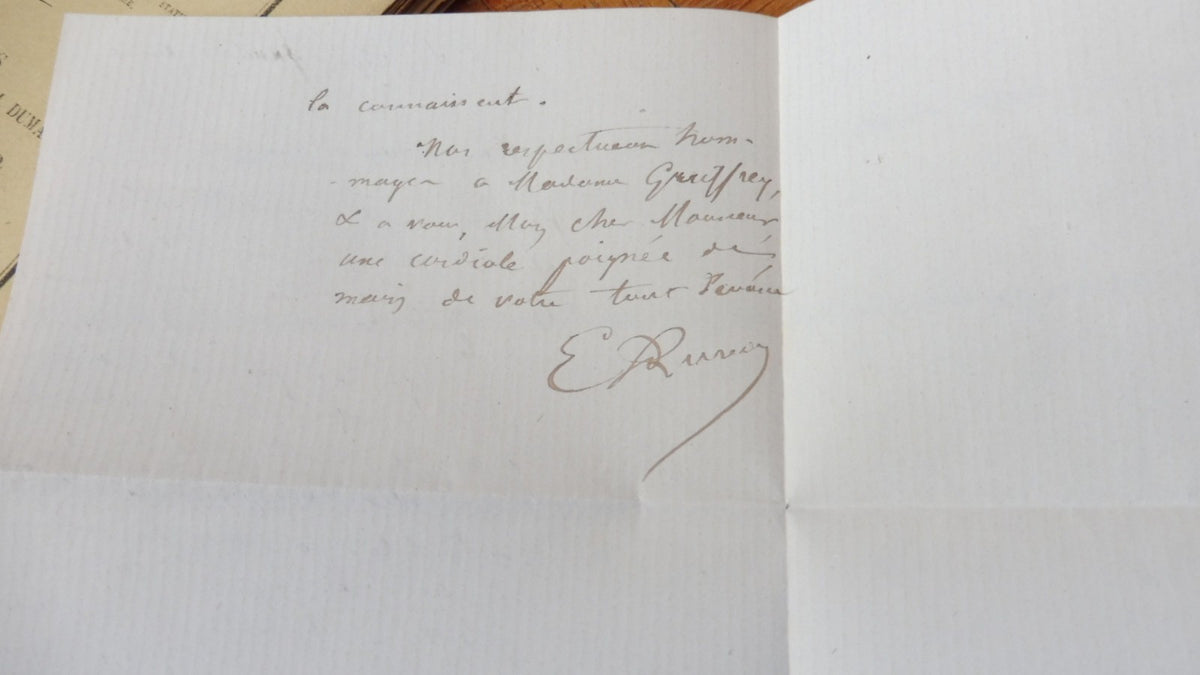 STAT
DUMA
la connaissent.
Nos respectueux hom-
-mages a Madame Geuffrey,
& a vous, Mon cher Monsieur
une cordiale poignée de
main de votre tout dévoué
E